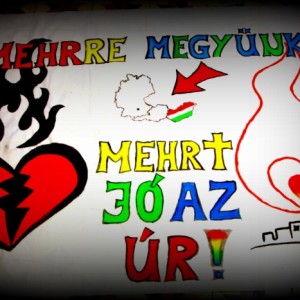 MEHRRE MEGYÜNK
MEHRT
JÓ AZ
ÚR!